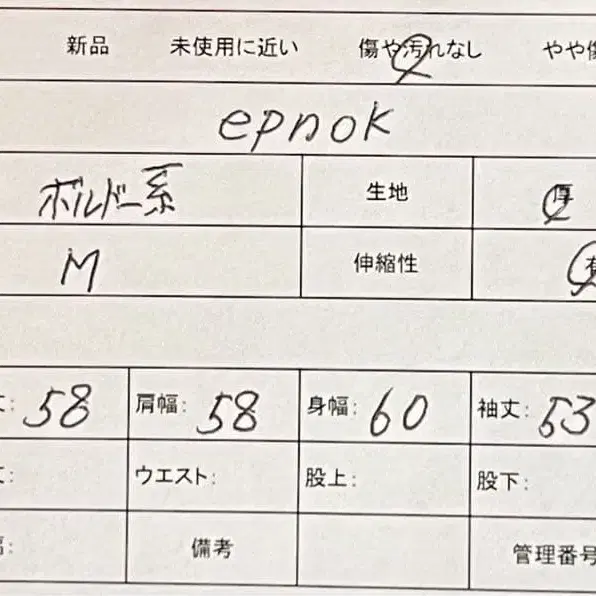 新品 未使用に近い 傷や汚れなし やや傷
epnok
ボルドー系 生地 厚
M 伸縮性 有
丈: 58 肩幅: 58 身幅: 60 袖丈: 53
丈: ウエスト: 股上: 股下:
幅: 備考 管理番号